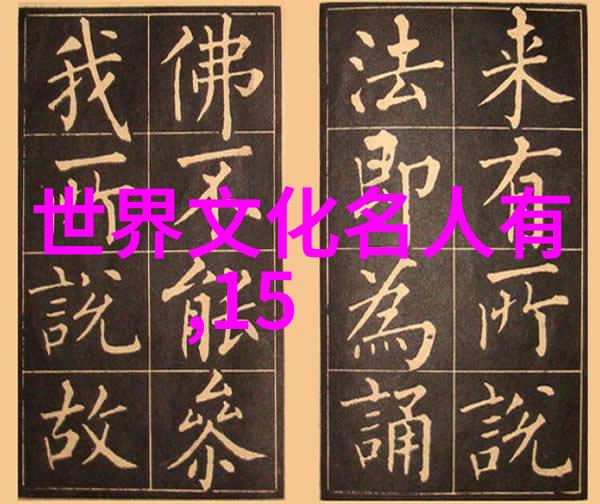 世界文化名人有
,15
来有所說
法即為誦
佛不能叅
我所說故